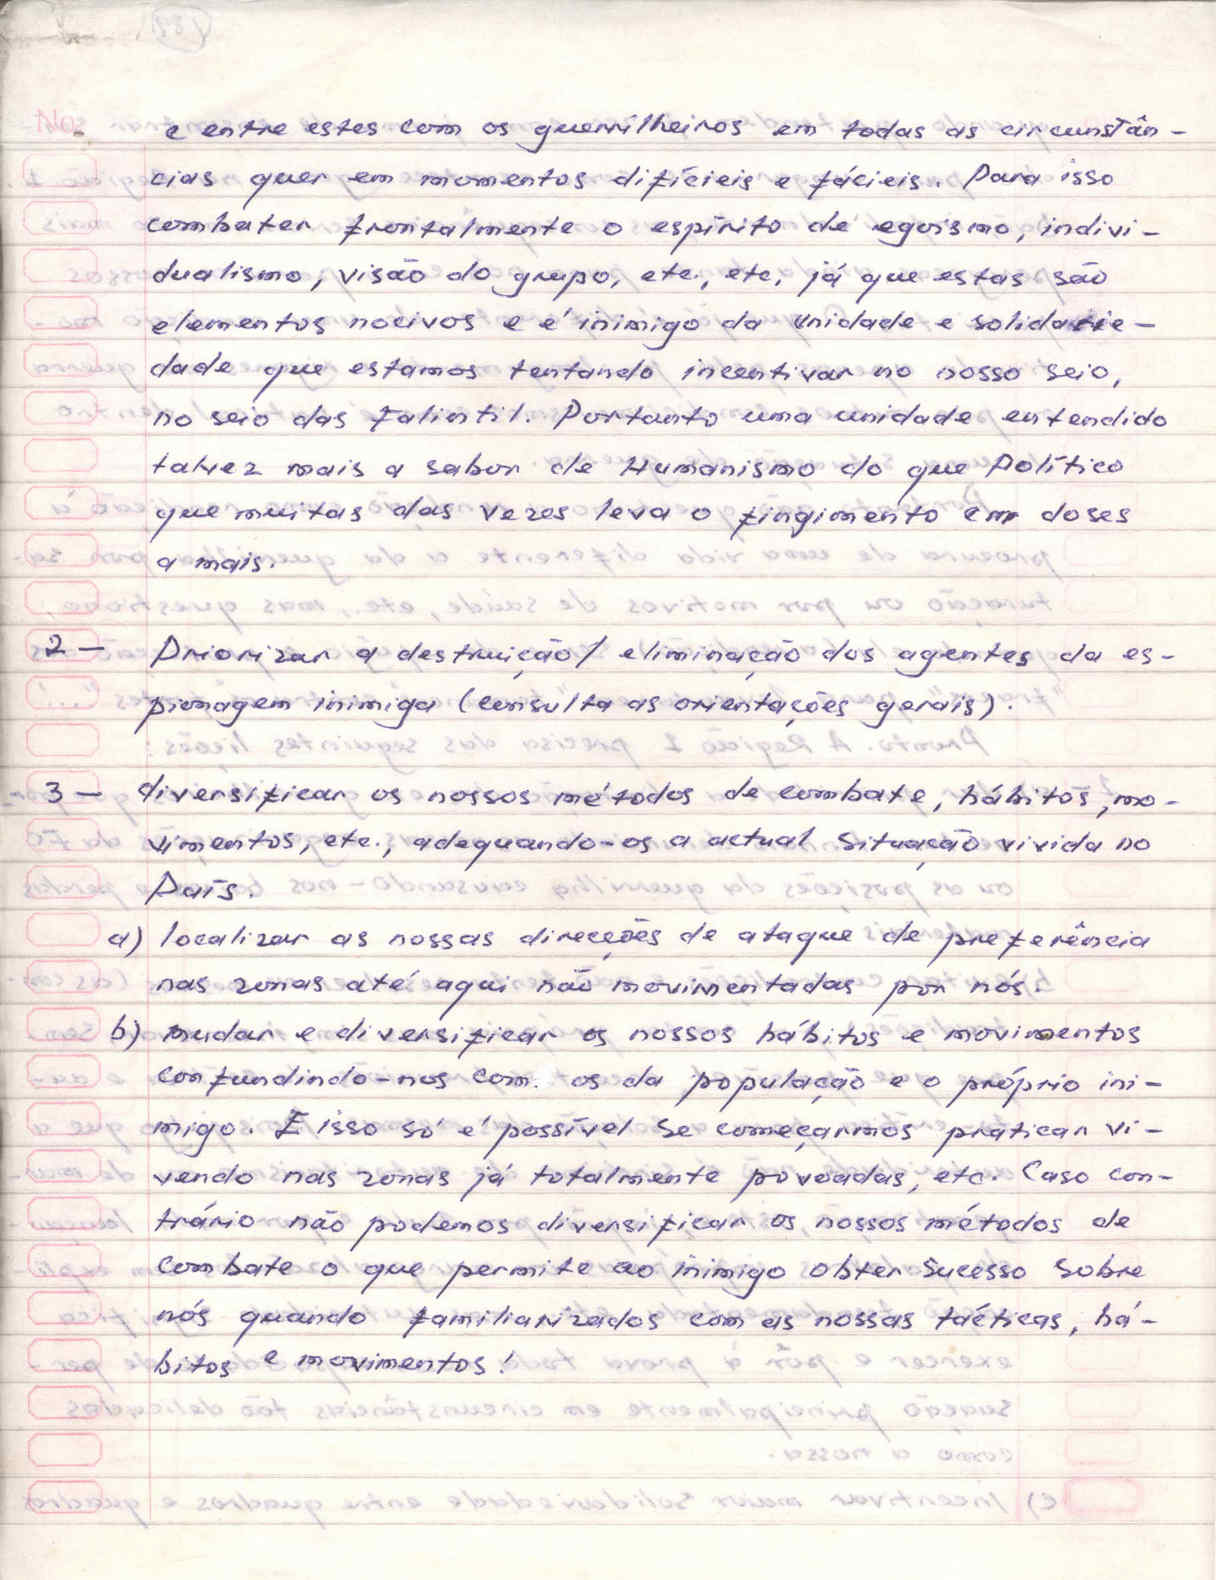 e entre estes com os guerrilheiros em todas as circunstân-
cias quer em momentos difícieis e fácieis. Para isso
combater frontalmente o espírito de egoismo, indivi-
dualismo, visão do grupo, etc., etc, já que estas são
elementos nocivos e é inimigo da unidade e solidarie-
dade que estamos tentando incentivar no nosso seio,
no seio das Falintil. Portanto uma unidade entendido
talvez mais a sabor de Humanismo do que Político
que muitas das vezes leva o fingimento em doses
a mais.
2 - Priorizar a destruição/ eliminação dos agentes da es-
pionagem inimiga (consulta as orientações gerais).
3 - diversificar os nossos métodos de combate, hábitos, mo-
vimentos, etc., adequando-os a actual situação vivida no
País.
a) localizar as nossas direcções de ataque de preferência
nas zonas até aqui não movimentadas por nós.
b) mudar e diversificar os nossos hábitos e movimentos
confundindo-nos com os da população e o próprio ini-
migo. E isso só é possível se começarmos praticar vi-
vendo nas zonas já totalmente povoadas, etc. Caso con-
trário não podemos diversificar os nossos métodos de
combate o que permite ao inimigo obter sucesso sobre
nós quando familiarizados com as nossas tácticas, há-
bitos e movimentos!